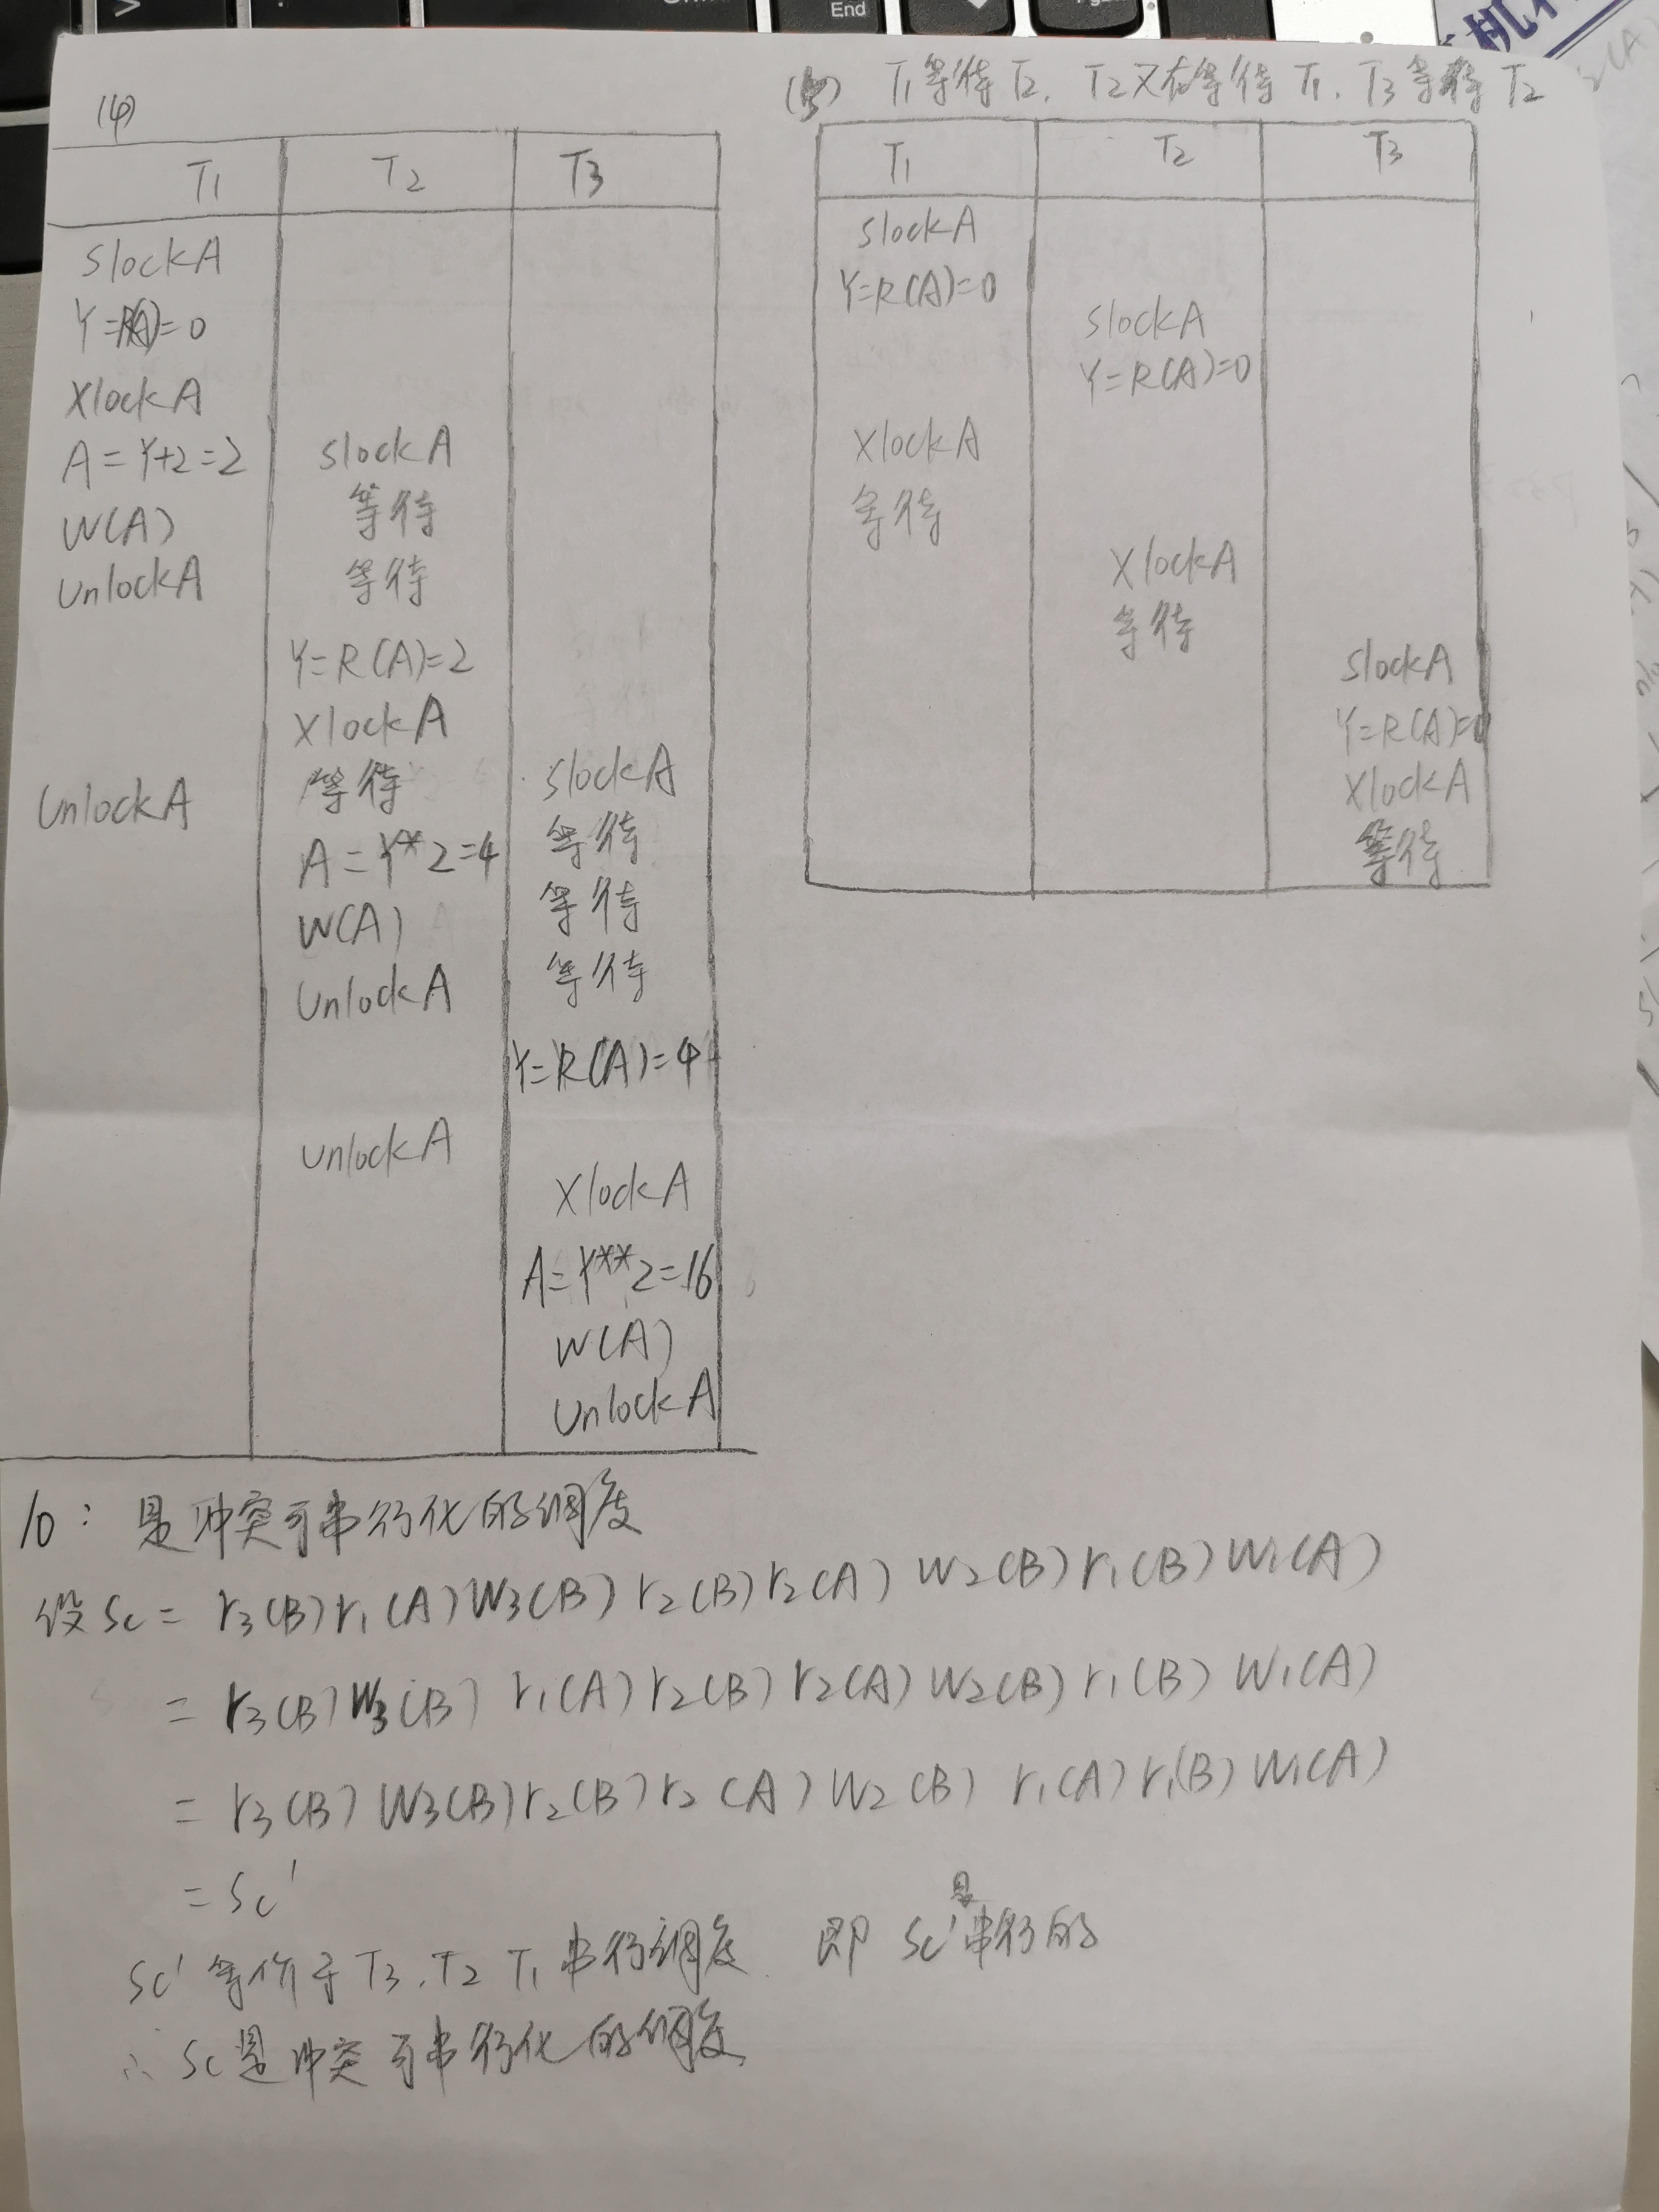 End
机
(4)
T1 T2 T3
SlockA
Y=R(A)=0
XlockA
A=Y+2=2 SlockA
W(A) 等待
UnlockA 等待
Y=R(A)=2
XlockA
UnlockA 等待 SlockA
A=Y*2=4 等待
W(A) 等待
UnlockA 等待
Y=R(A)=4
UnlockA
XlockA
A=Y**2=16
W(A)
UnlockA
(5) T1等待T2, T2又在等待T1, T3等待T2
T1 T2 T3
SlockA
Y=R(A)=0
SlockA
Y=R(A)=0
XlockA
等待
XlockA
等待
SlockA
Y=R(A)=0
XlockA
等待
10: 是冲突可串行化的调度
设Sc = r3(B) r1(A) W3(B) r2(B) r2(A) W2(B) r1(B) W1(A)
= r3(B) W3(B) r1(A) r2(B) r2(A) W2(B) r1(B) W1(A)
= r3(B) W3(B) r2(B) r2(A) W2(B) r1(A) r1(B) W1(A)
= Sc'
Sc' 等价于T3, T2 T1 串行调度, 即 Sc'是串行的
∴ Sc是冲突可串行化的调度